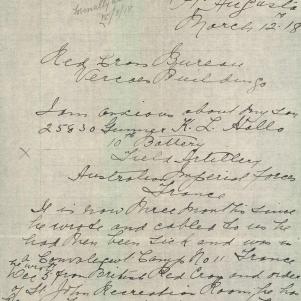 Augusta
March 12. 18
Red Cross Bureau
Vercoes Buildings
I am anxious about my son
25630 Gunner K. L. Hallo
10th Battery
Field Artillery
Australian Imperial Forces
France
It is now three months since
he wrote and cabled to us he
had then been sick and was in
a Convalescent Camp No 11. France
he wrote
Dec 3 from British Red Cross and order
of St John Recreation Room, he has